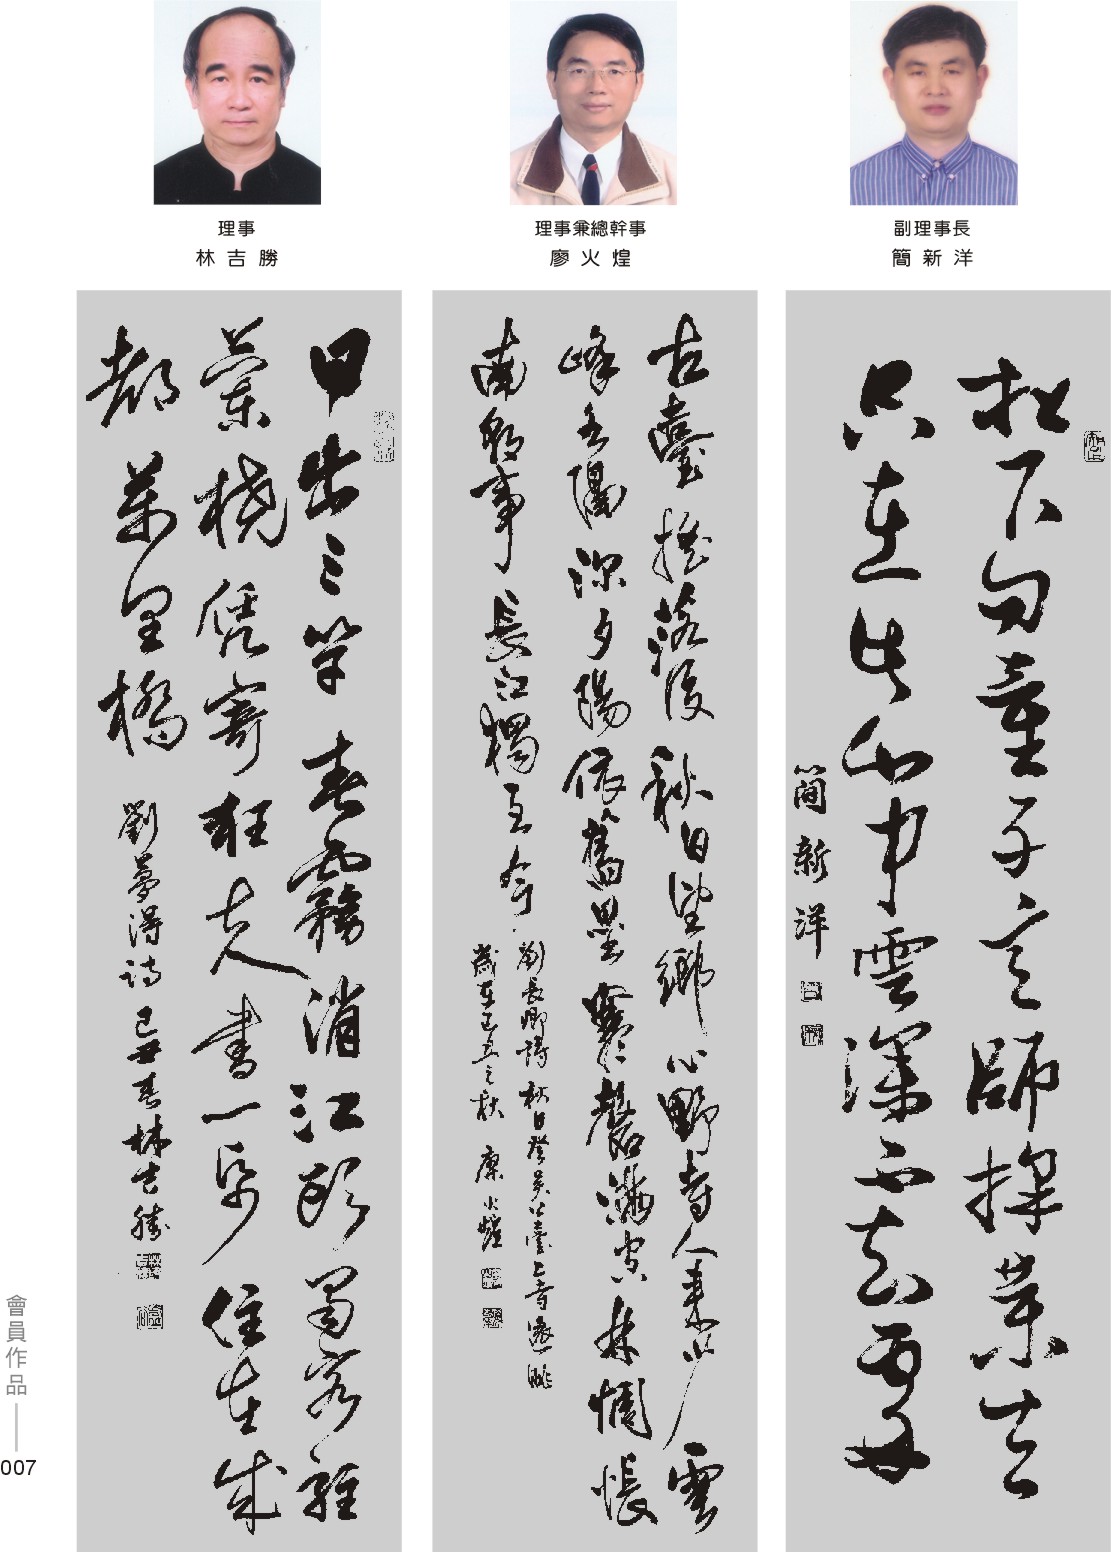 理事
林吉勝
理事兼總幹事
廖火煌
副理事長
簡新洋
松下問童子言師採藥去
只在此山中雲深不知處
簡新洋
古臺搖落後秋日望鄉心野寺人來少雲
峰水隔深夕陽依舊壘寒磬滿空林惆悵
南朝事長江獨至今
劉長卿詩秋日登吳公臺上寺遠眺
歲在己丑之秋 廖火煌
日出三竿春霧消江頭蜀客駐
蘭橈憑寄狂夫書一紙住在成
都萬里橋 劉夢得詩己丑春林吉勝
會員作品
007